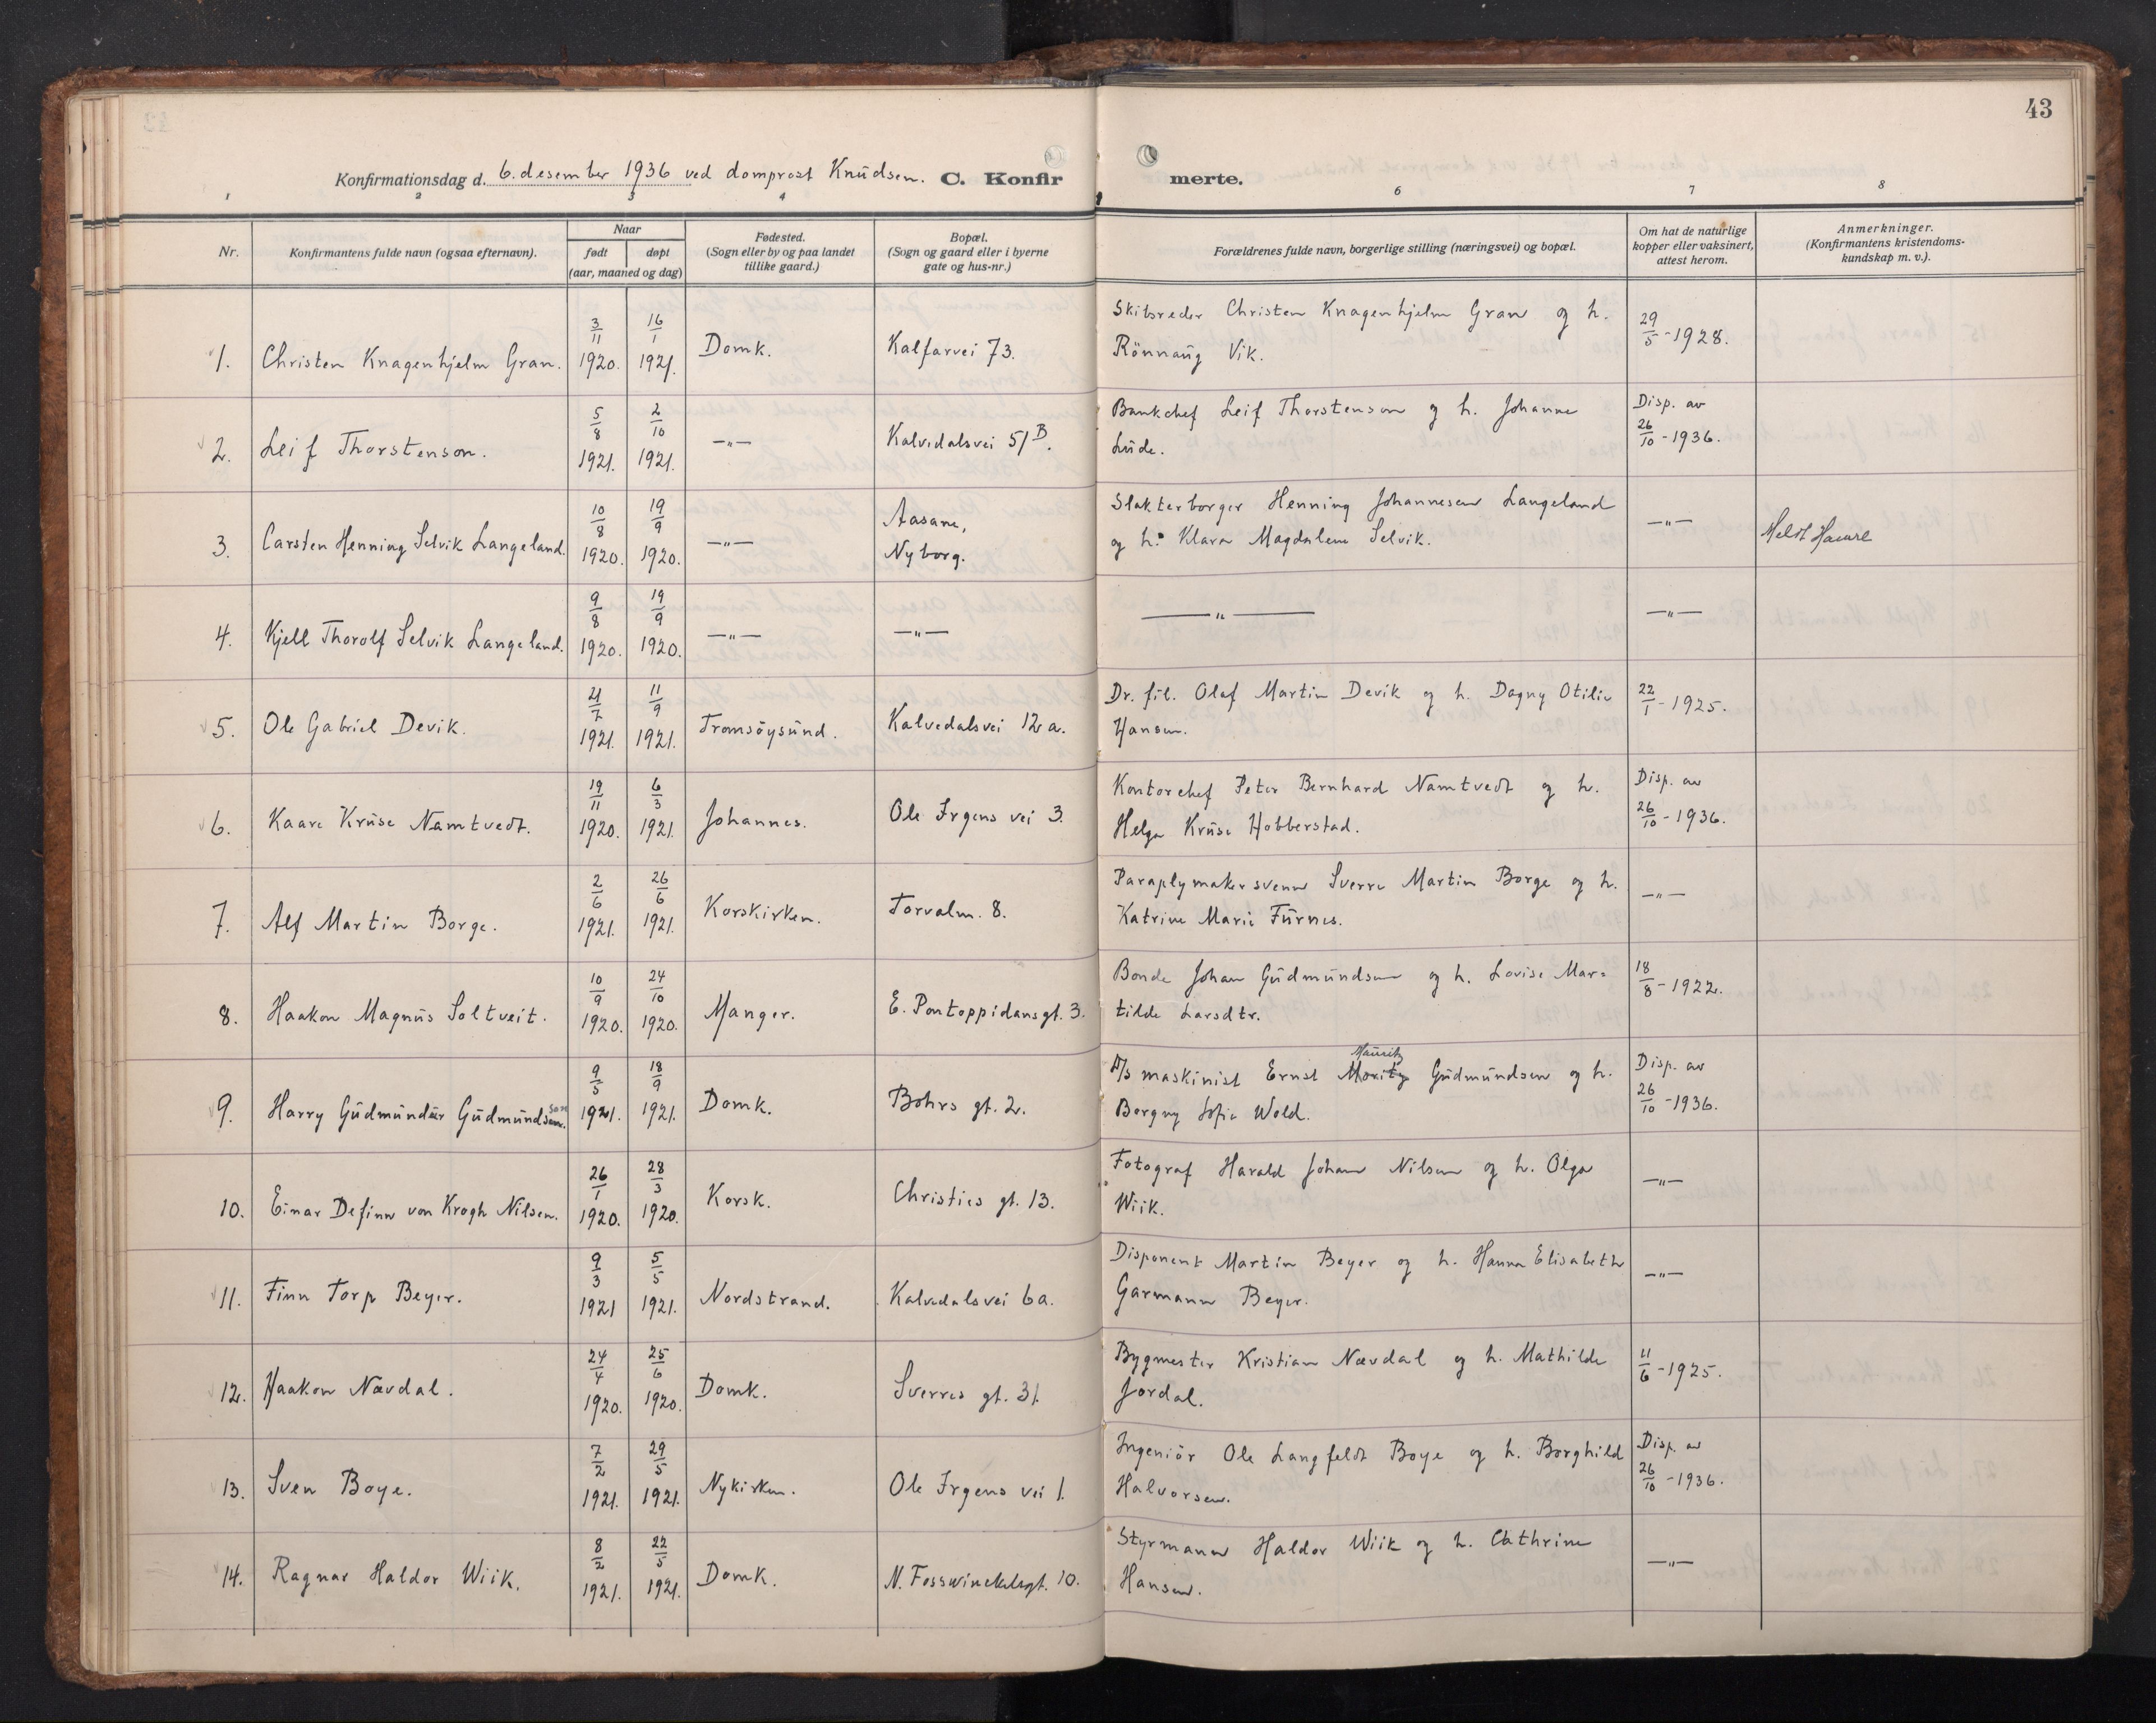 43
Konfirmationsdag d. 6. desember 1936 ved domprost Knudsen. C. Konfirmerte.
1 2 3 4 6 7 8
Nr. Konfirmantens fulde navn (ogsaa efternavn). Naar født døpt (aar, maaned og dag) Fødested. (Sogn eller by og paa landet tillike gaard.) Bopæl. (Sogn og gaard eller i byerne gate og hus-nr.) Forældrenes fulde navn, borgerlige stilling (næringsvei) og bopæl. Om hat de naturlige kopper eller vaksinert, attest herom. Anmerkninger. (Konfirmantens kristendoms-kundskap m. v.).
1. Christen Knagenhjelm Gran. 3/11 1920. 16/1 1921. Domk. Kalfarvei 73. Skibsreder Christen Knagenhjelm Gran og h. Rönnaug Vik. 29/5 - 1928.
2. Leif Thorstenson. 5/8 1921. 2/10 1921. —"— Kalvedalsvei 51B. Bankchef Leif Thorstenson og h. Johanne Lude. Disp. av 26/10 - 1936.
3. Carsten Henning Selvik Langeland. 10/8 1920. 19/9 1920. —"— Aasane, Nyborg. Slakterborger Henning Johannesen Langeland og h. Klara Magdalene Selvik. —"—
4. Kjell Thorolf Selvik Langeland. 9/8 1920. 19/9 1920. —"— —"— —"— —"—
5. Ole Gabriel Devik. 21/7 1921. 11/9 1921. Tromsöysund. Kalvedalsvei 12a. Dr. fil. Olaf Martin Devik og h. Dagny Otilie Hansen. 22/1 - 1925.
6. Kaare Kruse Namtvedt. 19/11 1920. 6/3 1921. Johannes. Ole Irgens vei 3. Kontorchef Peter Bernhard Namtvedt og h. Helga Kruse Hobberstad. Disp. av 26/10 - 1936.
7. Alf Martin Borge. 2/6 1921. 26/6 1921. Korskirken. Torvalm. 8. Paraplymakersvenn Sverre Martin Borge og h. Katrine Marie Furnes. —"—
8. Haakon Magnus Soltveit. 10/9 1920. 24/10 1920. Manger. E. Pontoppidansgt. 3. Bonde Johan Gudmundsen og h. Lovise Mar=tilde Larsdtr. 18/8 - 1922.
9. Harry Gudmunder Gudmundson. 9/5 1921. 18/9 1921. Domk. Bohrs gt. 2. D/s maskinist Ernst Moritz Mauritz Gudmundsen og h. Borgny Sofie Wold. Disp. av 26/10 - 1936.
10. Einar Definn von Krogh Nilsen. 26/1 1920. 28/3 1920. Korsk. Christies gt. 13. Fotograf Harald Johan Nilsen og h. Olga Wiik. —"—
11. Finn Torp Beyer. 9/3 1921 5/5 1921. Nordstrand. Kalvedalsvei 6a. Disponent Martin Beyer og h. Hanna Elisabeth Garmann Beyer. —"—
12. Haakon Nævdal. 24/4 1920. 25/6 1920. Domk. Sverres gt. 31. Bygmester Kristian Nævdal og h. Mathilde Jordal. 11/6 - 1925.
13. Sven Boye. 7/2 1921. 29/5 1921. Nykirken. Ole Irgens vei 1. Ingeniör Ole Langfeldt Boye og h. Borghild Halvorsen. Disp. av 26/10 - 1936.
14. Ragnar Haldor Wiik. 8/2 1921. 22/5 1921. Domk. N. Fosswinckelsgt. 10. Styrmann Haldor Wiik og h. Cathrine Hansen. —"—